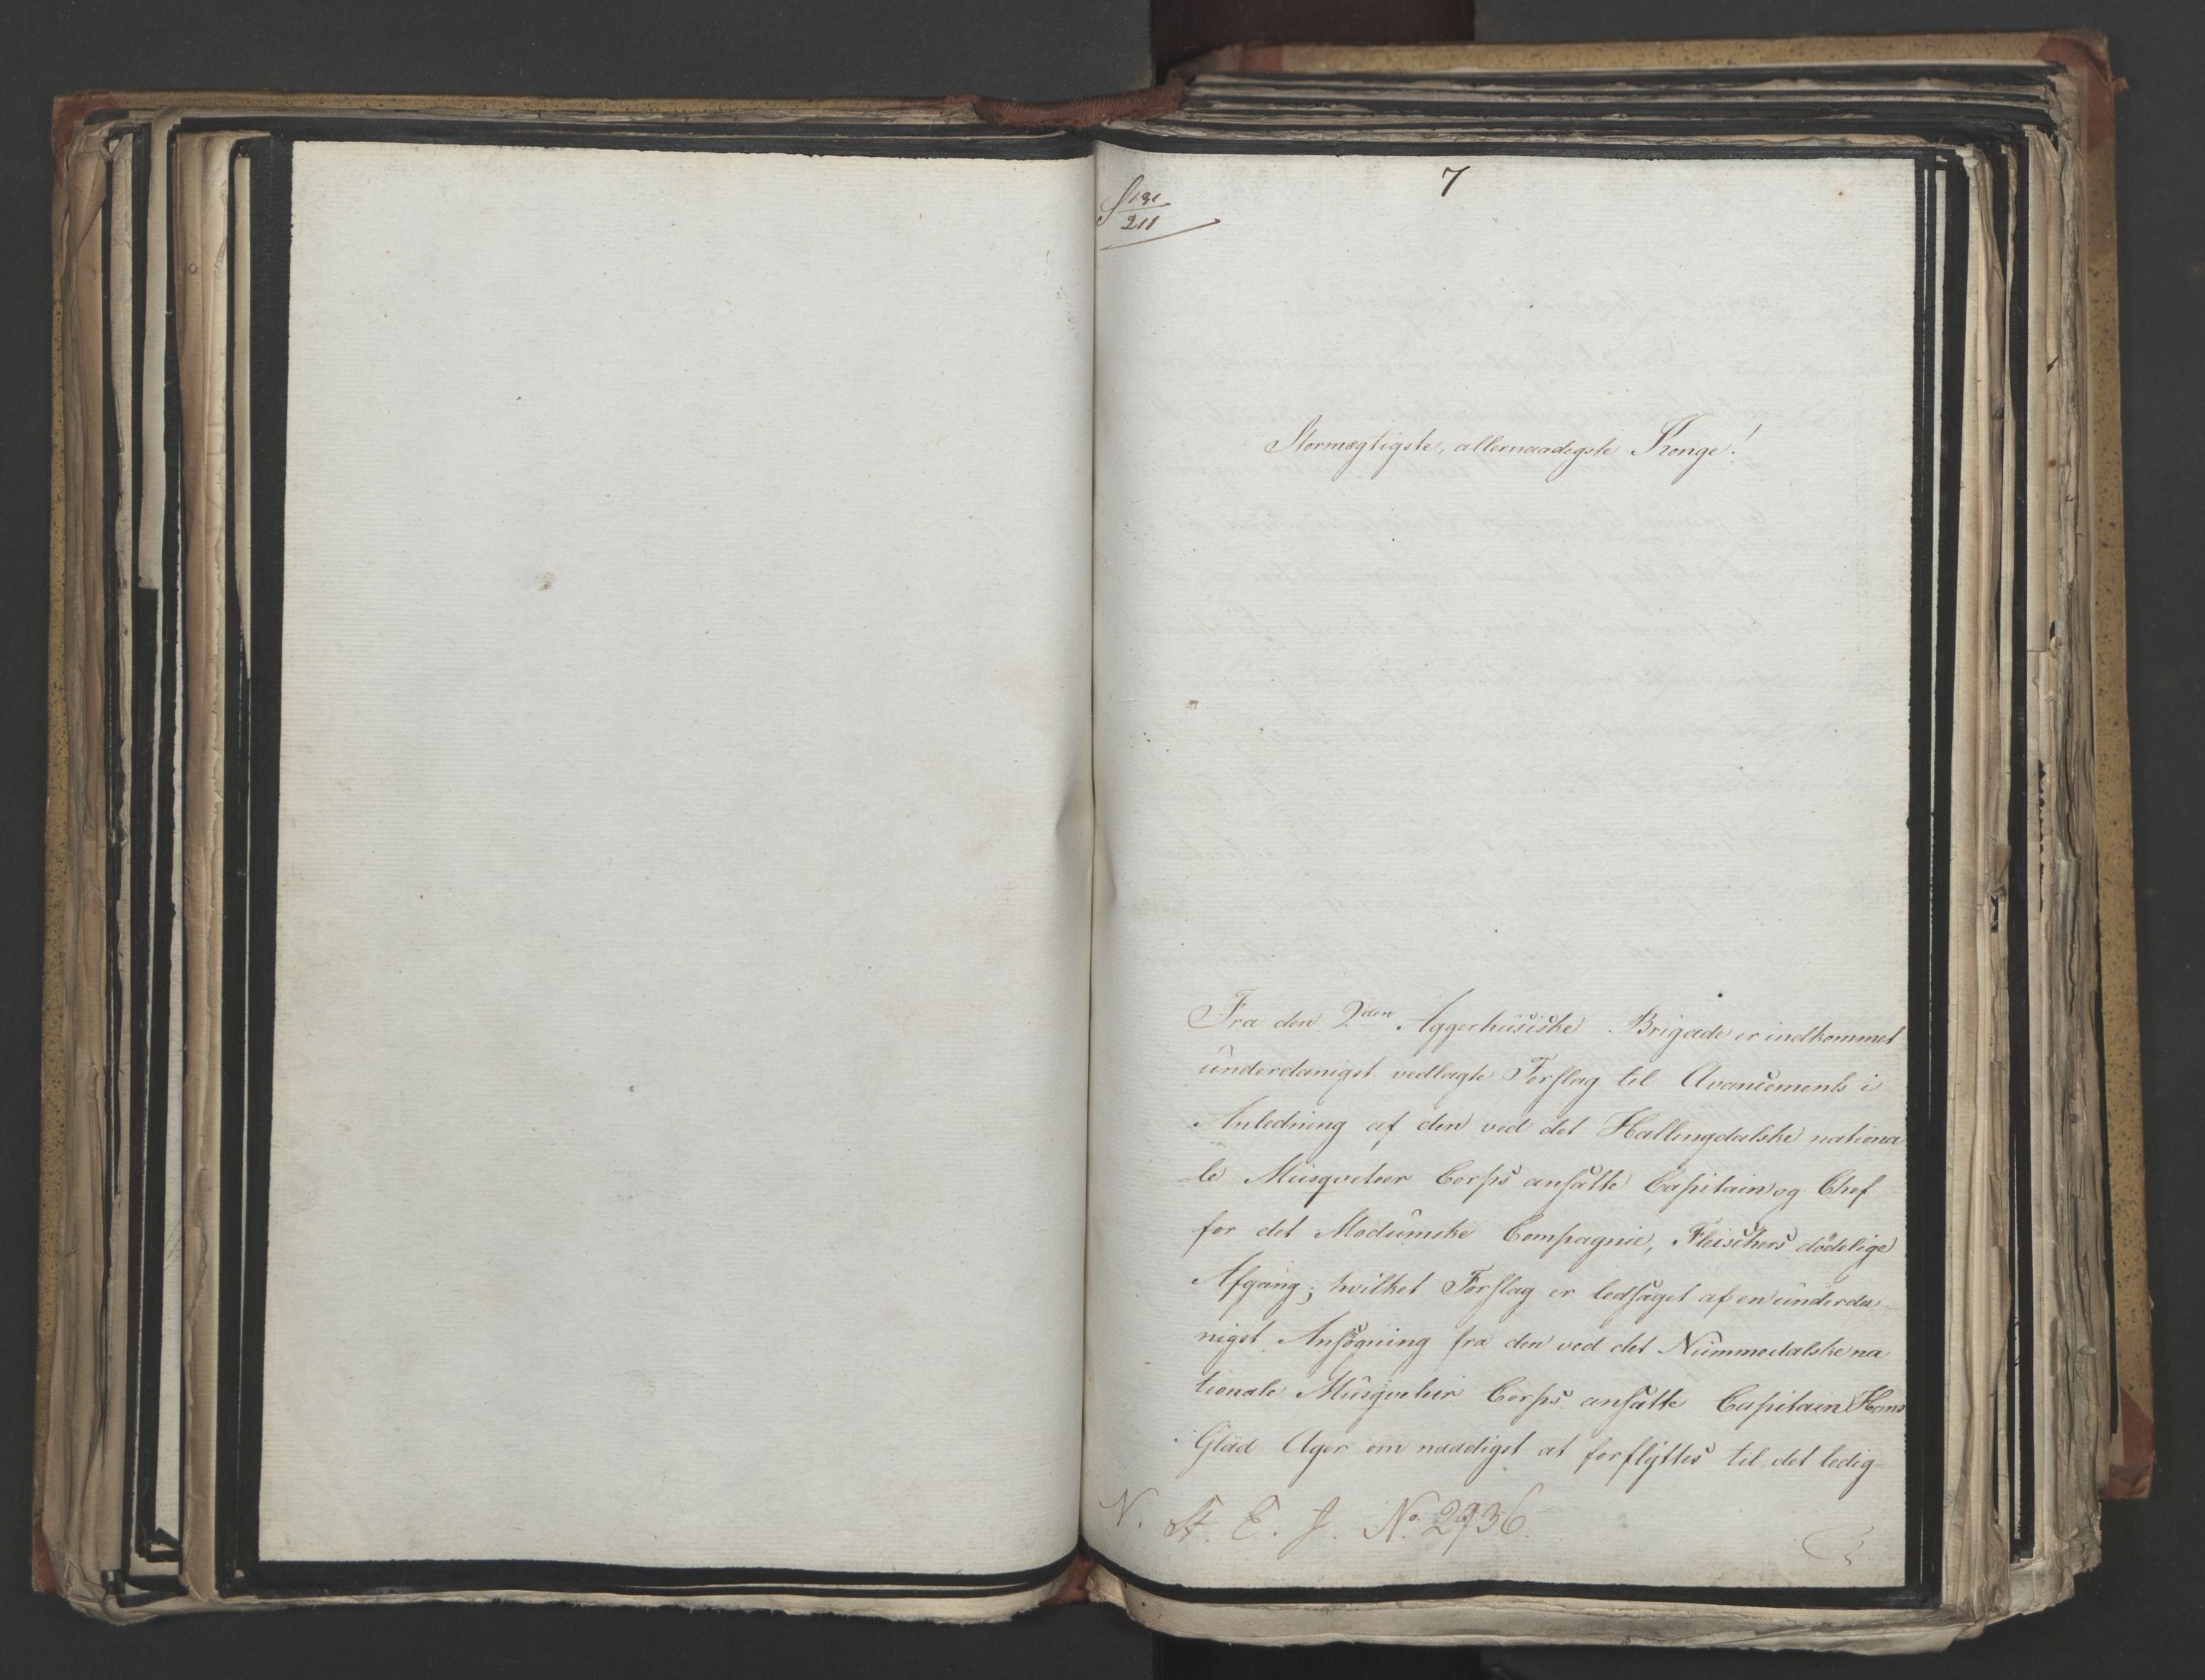 7
S 131/211
Stormægtigste, allernaadigste Konge!
Fra den 2den Aggerhusiske Brigade er indkommet
underdanigst vedlagte Forslag til Avancements i
Anledning af den ved det Hallingdalske nationa
-le Musqveteer Corps ansatte Capitain og Chef
for det Modumske Compagnie, Fleischers dödelige
Afgang; hvilket Forslag er ledsaget af en underda-
nigst Ansögning fra den ved det Nummedalske na
tionale Musqveteir Corps ansatte Capitain Hans
Glad Ager om naadigst at forflyttes til det ledig-
N. St. E. J. No. 2936